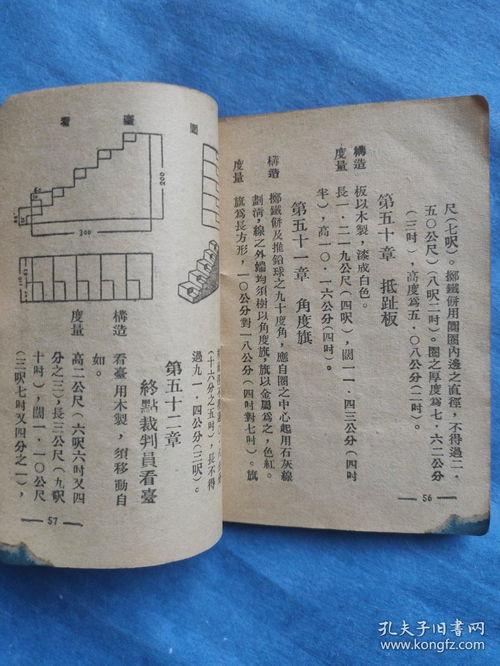 尺(七呎)。擲鐵餅用圈圈內邊之直徑,不得過二·
五〇公尺(八呎二吋)。圈之厚度爲七·六二公分
(三吋),高度爲五·〇八公分(二吋)。
第五十章 抵趾板
構造 板以木製,漆成白色。
度量 長一·二一九公尺(四呎),闊一一·四三公分(四吋
半),高一〇·一六公分(四吋)。
第五十一章 角度旗
構造 擲鐵餅及推鉛球之九十度角,應自圈之中心起用石灰線
劃淸,線之外端均須樹以角度旗,旗以金屬爲之,色紅。
度量 旗爲長方形,一〇公分對一八公分(四吋對七吋)。旗
56
(十六分之五吋),長不得
過九一·四公分(三呎)。
第五十二章
終點裁判員看臺
構造 看臺用木製,須移動自
如。
度量 高二公尺(六呎六吋又四
分之三),長三公尺(九呎
十吋),闊一·一〇公尺
(三呎七吋又四分之一),
57
圖
臺
看
200
300
孔夫子旧书网
www.kongfz.com